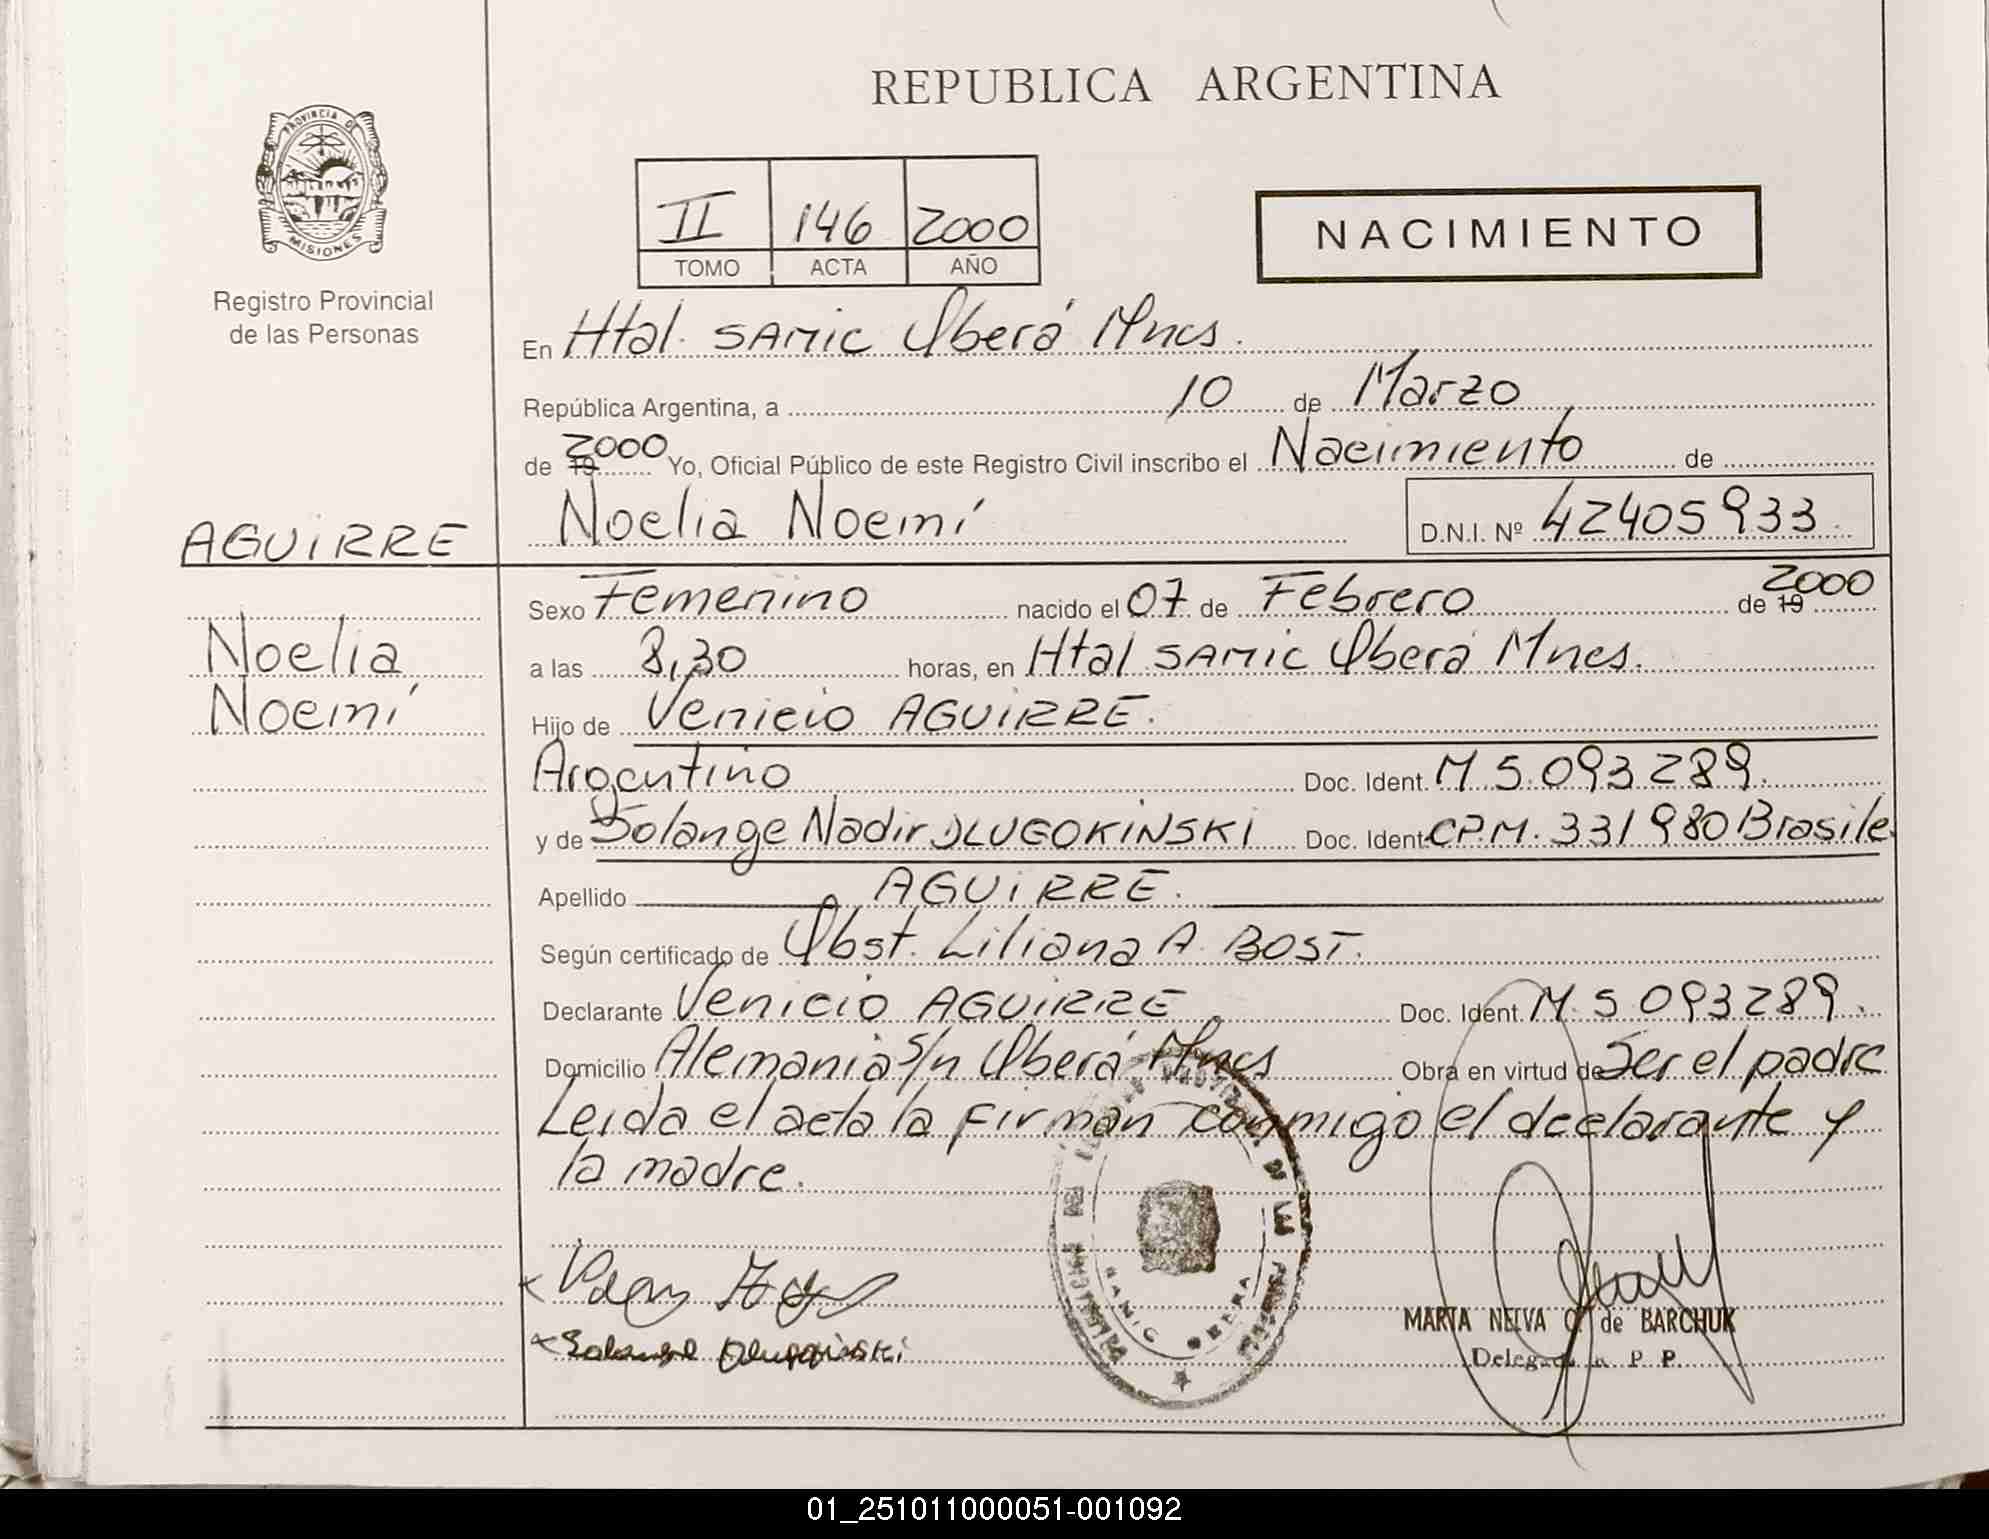 REPUBLICA ARGENTINA
PROVINCIA DE
MISIONES
Registro Provincial
de las Personas
II 146 2000
TOMO ACTA AÑO
NACIMIENTO
En Htal. SAMIC Oberá Mnes.
República Argentina, a 10 de Marzo
de 19 2000 Yo, Oficial Público de este Registro Civil inscribo el Nacimiento de
AGUIRRE Noelia Noemí D.N.I. Nº 42405933
Sexo Femenino nacido el 07 de Febrero de 19 2000
Noelia a las 8,30 horas, en Htal SAMIC Oberá Mnes.
Noemí Hijo de Venicio AGUIRRE.
Argentino Doc. Ident. M 5.093289.
y de Solange Nadir DLUGOKINSKI Doc. Ident. CP.M. 331980 Brasile.
Apellido AGUIRRE.
Según certificado de Obst. Liliana A. BOST.
Declarante Venicio AGUIRRE Doc. Ident. M. 5 093289.
Domicilio Alemania s/n Oberá Mnes Obra en virtud de Ser el padre
Leida el acta la firman conmigo el declarante y
la madre.
SAMIC OBERA
MARTA NELVA de BARCHUK
Delegada P P
01_251011000051-001092